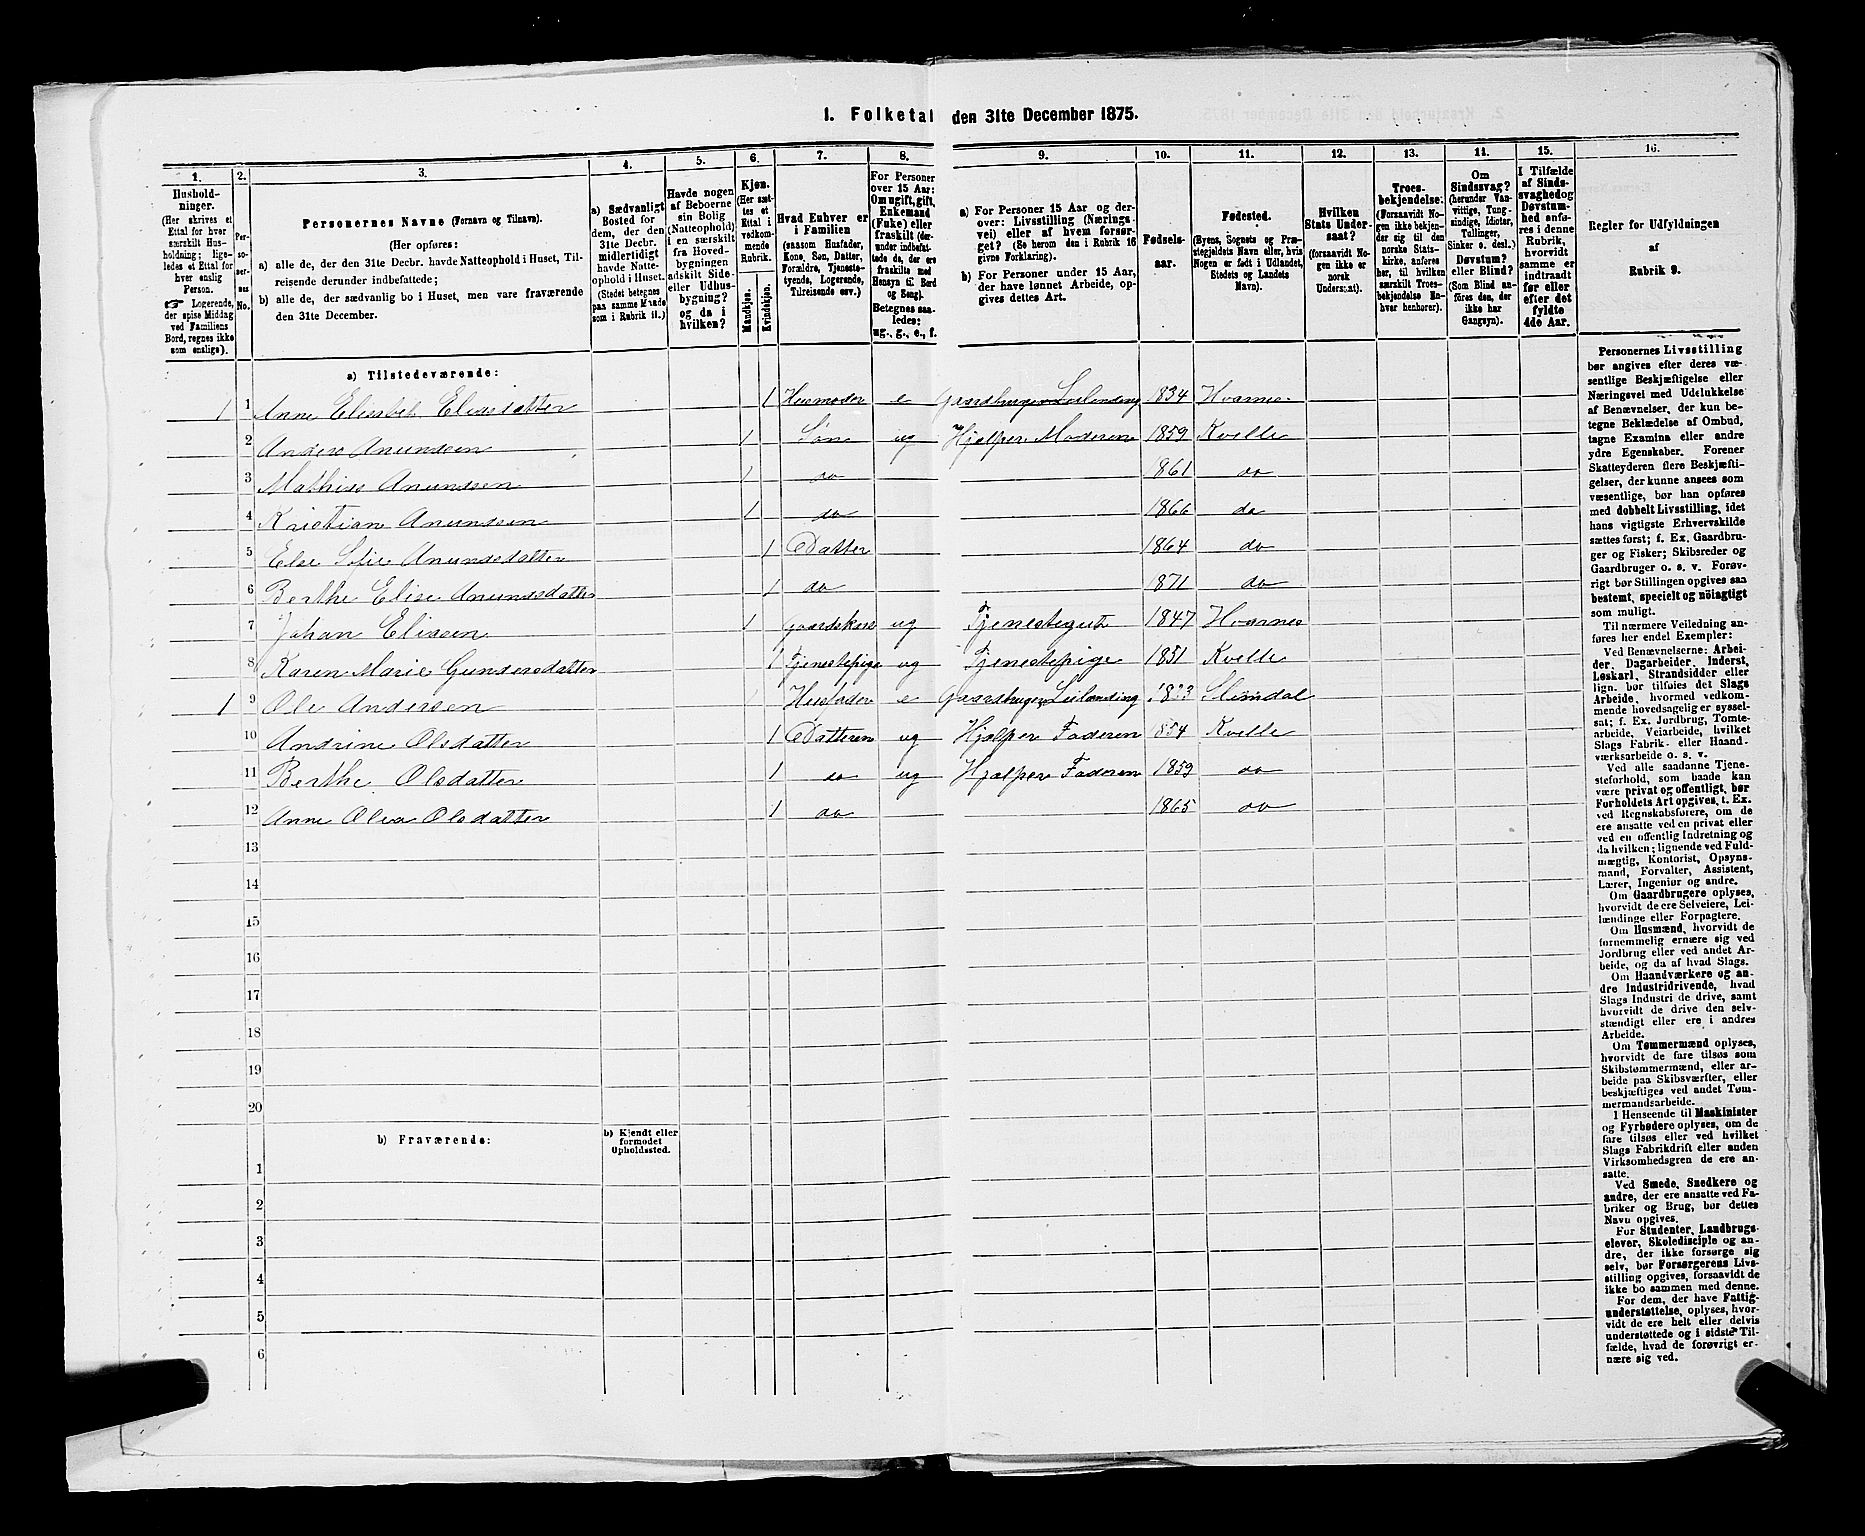 1. Folketal den 31te December 1875.
1. 2. 3. 4. 5. 6. 7. 8. 9. 10. 11. 12. 13. 14. 15. 16.
Hushold-
ninger.
(Her skrives et
Ettal for hver
særskilt Hus-
holdning; lige-
ledes et Ettal for
hver enslig
Person.
☞ Logerende,
der spise Middag
ved Familiens
Bord, regnes ikke
som enslige).
Per-
so-
ner-
nes
No.
Personernes Navne (Fornavn og Tilnavn).
(Her opføres:
a) alle de, der den 31te Decbr. havde Natteophold i Huset, Til-
reisende derunder indbefattede;
b) alle de, der sædvanlig bo i Huset, men vare fraværende
den 31te December.
a) Sædvanligt
Bosted for
dem, der den
31te Decbr.
midlertidigt
havde Natte-
ophold i Huset.
(Stedet betegnes
paa samme Maade
som i Rubrik 11.)
Havde nogen
af Beboerne
sin Bolig
(Natteophold)
i en særskilt
fra Hoved-
bygningen
adskilt Side-
eller Udhus-
bygning?
og da i
hvilken?
Kjøn.
(Her sæt-
tes et
Ettal i
vedkom-
mende
Rubrik.
Mandkjøn.
Kvindekjøn.
Hvad Enhver er
i Familien
(saasom Husfader,
Kone, Søn, Datter,
Forældre, Tjeneste-
tyende, Logerende,
Tilreisende osv.)
For Personer
over 15 Aar:
Om ugift, gift,
Enkemand
(Enke) eller
fraskilt (der-
under indbefat-
tede de, der ere
fraskilte med
Hensyn til Bord
og Seng).
Betegnes saa-
ledes:
ug., g., e., f.
a) For Personer 15 Aar og der-
over: Livsstilling (Nærings-
vei) eller af hvem forsør-
get? (Se herom den i Rubrik 16
givne Forklaring).
b) For Personer under 15 Aar,
der have lønnet Arbeide, op-
gives dettes Art.
Fødsels-
aar.
Fødested.
(Byens, Sognets og Præ-
stegjeldets Navn eller, hvis
Nogen er født i Udlandet,
Stedets og Landets
Navn).
Hvilken
Stats Under-
saat?
(forsaavidt No-
gen ikke er
norsk
Undersaat).
Troes-
bekjendelse:
(Forsaavidt No-
gen ikke bekjen-
der sig til den
norske Stats-
kirke, anføres
her, til hvilken
særskilt Troes-
bekjendelse En-
hver henhører).
Om
Sindssvag?
(herunder Van-
vittige, Tung-
sindige, Idioter,
Tullinger,
Sinker o. desl.)
Døvstum?
eller Blind?
(Som Blind an-
føres den, der
ikke har
Gangsyn).
I Tilfælde
af Sinds-
svaghed og
Døvstum-
hed anfø-
res i denne
Rubrik,
hvorvidt
samme er
indtraadt
før eller
efter det
fyldte
4de Aar.
Regler for Udfyldningen
af
Rubrik 9.
a) Tilstedeværende:
1 1 Anne Elisabet Elisdatter 1 Husmoder e Gaardbruger Leilending 1834 Hvarnes
2 Anders Anundsen 1 Søn ug Hjelper Moderen 1859 Kvelle
3 Mathise Anundsen 1 do 1861 do
4 Kristian Anundsen 1 do 1866 do
5 Else Sofie Anundsdatter 1 Datter 1864 do
6 Berthe Elise Anundsdatter 1 do 1871 do
7 Johan Elissen 1 gaardskar ug Tjenestegut 1847 Hvarnes
8 Karen Marie Gundersdatter 1 Tjenestepige ug Tjenestepige 1851 Kvelle
1 9 Ole Andersen 1 Husfader e Gaardbruger Leilending Slemdal
10 Andrine Olsdatter 1 Datteren ug Hjelper Faderen 1854 Kvelle
11 Berthe Olsdatter 1 do ug Hjelper Faderen 1859 do
12 Anne Olea Olsdatter 1 do 1865 do
13
14
15
16
17
18
19
20
b) Fraværende:
b) Kjendt eller
formodet
Opholdssted.
1
2
3
4
5
6
Personernes Livsstilling
bør angives efter deres væ-
sentlige Beskjæftigelse eller
Næringsvei med Udelukkelse
af Benævnelser, der kun be-
tegne Beklædelse af Ombud,
tagne Examina eller andre
ydre Egenskaber. Forener
Skatteyderen flere Beskjæfti-
gelser, der kunne ansees som
væsentlige, bør han opføres
med dobbelt Livsstilling, idet
hans vigtigste Erhvervskilde
sættes først; f. Ex. Gaardbru-
ger og Fisker; Skibsreder og
Gaardbruger o. s. v. Forøv-
rigt bør Stillingen opgives saa
bestemt, specielt og nøiagtigt
som muligt.
Til nærmere Veiledning an-
føres her endel Exempler:
Ved Benævnelserne: Arbei-
der, Dagarbeider, Inderst,
Løskarl, Strandsidder eller
lign. bør tilføies det Slags
Arbeide, hvormed vedkom-
mende hovedsagelig er syssel-
sat; f. Ex. Jordbrug, Tomte-
arbeide, Veiarbeide, hvilket
Slags Fabrik- eller Haand-
værksarbeide o. s. v.
Ved alle saadanne Tjene-
steforhold, som baade kan
være privat og offentligt, bør
Forholdets Art opgives, t. Ex.
ved Regnskabsførere, om de
ere ansatte ved en privat eller
ved en offentlig Indretning og
da hvilken; lignende ved Fuld-
mægtig, Kontorist, Opsyns-
mand, Forvalter, Assistent,
Lærer, Ingeniør og andre.
Om Gaardbrugere oplyses,
hvorvidt de ere Selveiere, Lei-
lændinge eller Forpagtere.
Om Husmænd, hvorvidt de
fornemmelig ernære sig ved
Jordbrug eller ved andet Ar-
beide, og da af hvad Slags.
Om Haandværkere og an-
dre Industridrivende, hvad
Slags Industri de drive, samt
hvorvidt de drive den selv-
stændigt eller ere i andres
Arbeide.
Om Tømmermænd oplyses,
hvorvidt de fare tilsøs som
Skibstømmermænd, eller ar-
beide paa Skibsværfter, eller
beskjæftiges ved andet Tøm-
mermandsarbeide.
I Henseende til Maskinister
og Fyrbødere oplyses, om de
fare tilsøs eller ved hvilket
Slags Fabrikdrift eller anden
Virksomhedsgren de ere an-
satte.
Ved Smede, Snedkere og
andre, der ere ansatte ved Fa-
briker og Brug, bør dettes
Navn opgives.
For Studenter, Landbrugs-
elever, Skoledisciple og an-
dre, der ikke forsørge sig
selv, bør Forsørgerens Livs-
stilling opgives, forsaavidt de
ikke bo sammen med denne.
For dem, der have Fattig-
understøttelse, oplyses, hvor-
vidt de ere helt eller delvis
understøttede og i sidste Til-
fælde, hvad de forøvrigt er-
nære sig ved.